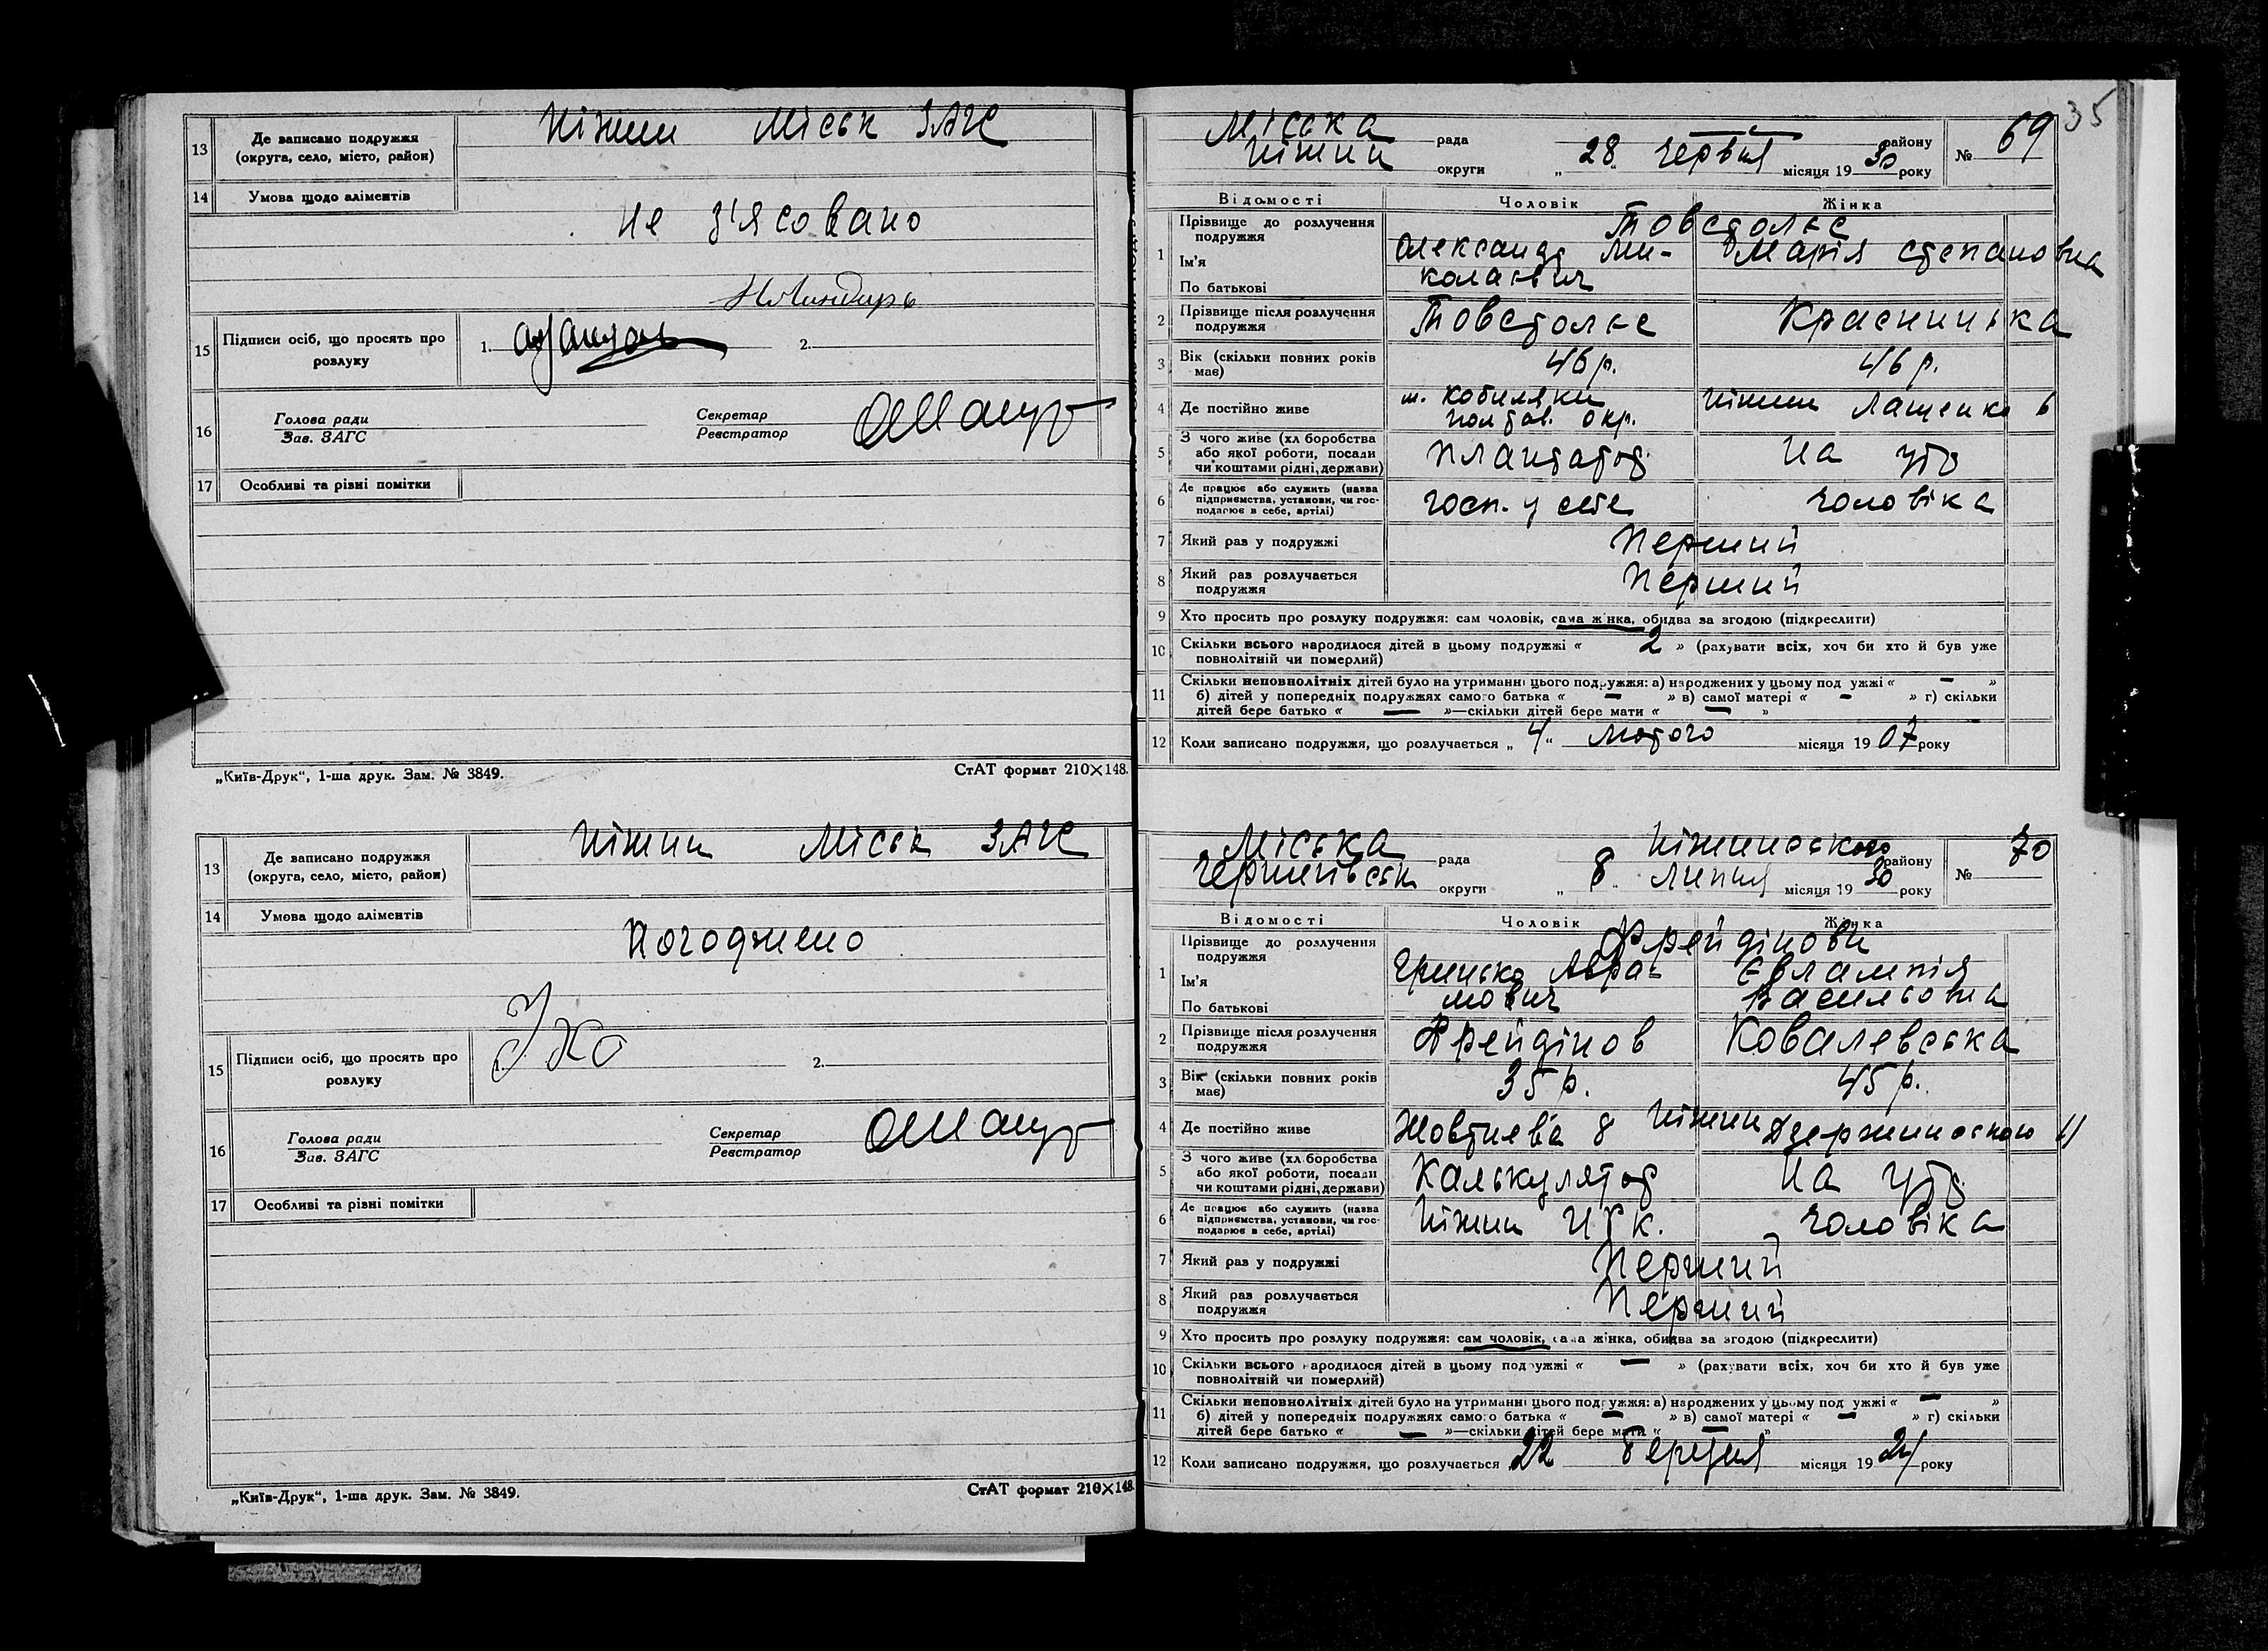 13 Де записано подружжя
(округа, село, місто, район)
Ніжин Міськ ЗАГС
14 Умова щодо аліментів
не з'ясовано
15 Підписи осіб, що просять про
розлуку
1. 2.
16 Голова ради
Зав. ЗАГС
Секретар
Реєстратор
17 Особливі та різні помітки
„Київ-Друк“, 1-ша друк. Зам. № 3849. СтАТ формат 210×148.
13 Де записано подружжя
(округа, село, місто, район)
Ніжин Міськ ЗАГС
14 Умова щодо аліментів
Погоджено
15 Підписи осіб, що просять про
розлуку
1. 2.
16 Голова ради
Зав. ЗАГС
Секретар
Реєстратор
17 Особливі та різні помітки
„Київ-Друк“, 1-ша друк. Зам. № 3849. СтАТ формат 210×148.
35
Міська рада району № 69
Ніжин округи „28“ червня місяця 1930 року
Відомості Чоловік Жінка
1 Прізвище до розлучення
подружжя
Товстолєс
Ім'я
Олександр Ми- Марія Степановна
По батькові
колаєвич
2 Прізвище після розлучення
подружжя
Товстолєс Красницька
3 Вік (скільки повних років
має)
46 р. 46 р.
4 Де постійно живе
м. Кобиляки Ніжин Лащенка 6
полтав. окр.
5 З чого живе (хл боробства
або якої роботи, посади
чи коштами рідні, держави)
плантатор на утр
6 Де працює або служить (назва
підприємства, установи, чи гос-
подарює в себе, артілі)
госп. у себе чоловіка
7 Який раз у подружжі
Перший
8 Який раз розлучається
подружжя
Перший
9 Хто просить про розлуку подружжя: сам чоловік, сама жінка, обидва за згодою (підкреслити)
10 Скільки всього народилося дітей в цьому подружжі « 2 » (рахувати всіх, хоч би хто й був уже
повнолітній чи померлий)
11 Скільки неповнолітніх дітей було на утриманні цього подружжя: а) народжених у цьому подружжі « — »
б) дітей у попередніх подружжях самого батька « — » в) самої матері « — » г) скільки
дітей бере батько « — »—скільки дітей бере мати « — »
12 Коли записано подружжя, що розлучається „4“ лютого місяця 1907 року
Міська рада Ніжинського району № 70
Чернигівськ округи „8“ липня місяця 1930 року
Відомості Чоловік Жінка
1 Прізвище до розлучення
подружжя
Фрейдінови
Ім'я
Гринько Авра- Євлампія
По батькові
мович Васильовна
2 Прізвище після розлучення
подружжя
Фрейдінов Ковалевська
3 Вік (скільки повних років
має)
35 р. 45 р.
4 Де постійно живе
Жовтнева 8 Ніжин Дзержинського 11
5 З чого живе (хл боробства
або якої роботи, посади
чи коштами рідні, держави)
Калькулятор на утр.
6 Де працює або служить (назва
підприємства, установи, чи гос-
подарює в себе, артілі)
Ніжин чоловіка
7 Який раз у подружжі
Перший
8 Який раз розлучається
подружжя
Перший
9 Хто просить про розлуку подружжя: сам чоловік, сама жінка, обидва за згодою (підкреслити)
10 Скільки всього народилося дітей в цьому подружжі « — » (рахувати всіх, хоч би хто й був уже
повнолітній чи померлий)
11 Скільки неповнолітніх дітей було на утриманні цього подружжя: а) народжених у цьому подружжі « — »
б) дітей у попередніх подружжях самого батька « — » в) самої матері « — » г) скільки
дітей бере батько « — »—скільки дітей бере мати « — »
12 Коли записано подружжя, що розлучається 22 березня місяця 1924 року